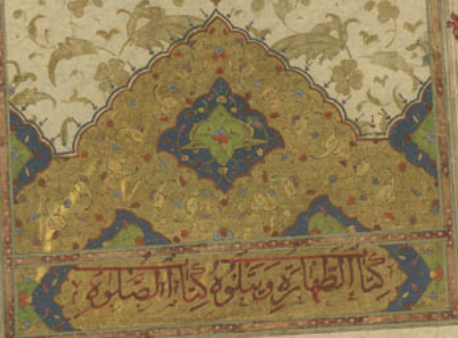 كتاب الطهارة ويتلوه كتاب الصلوة